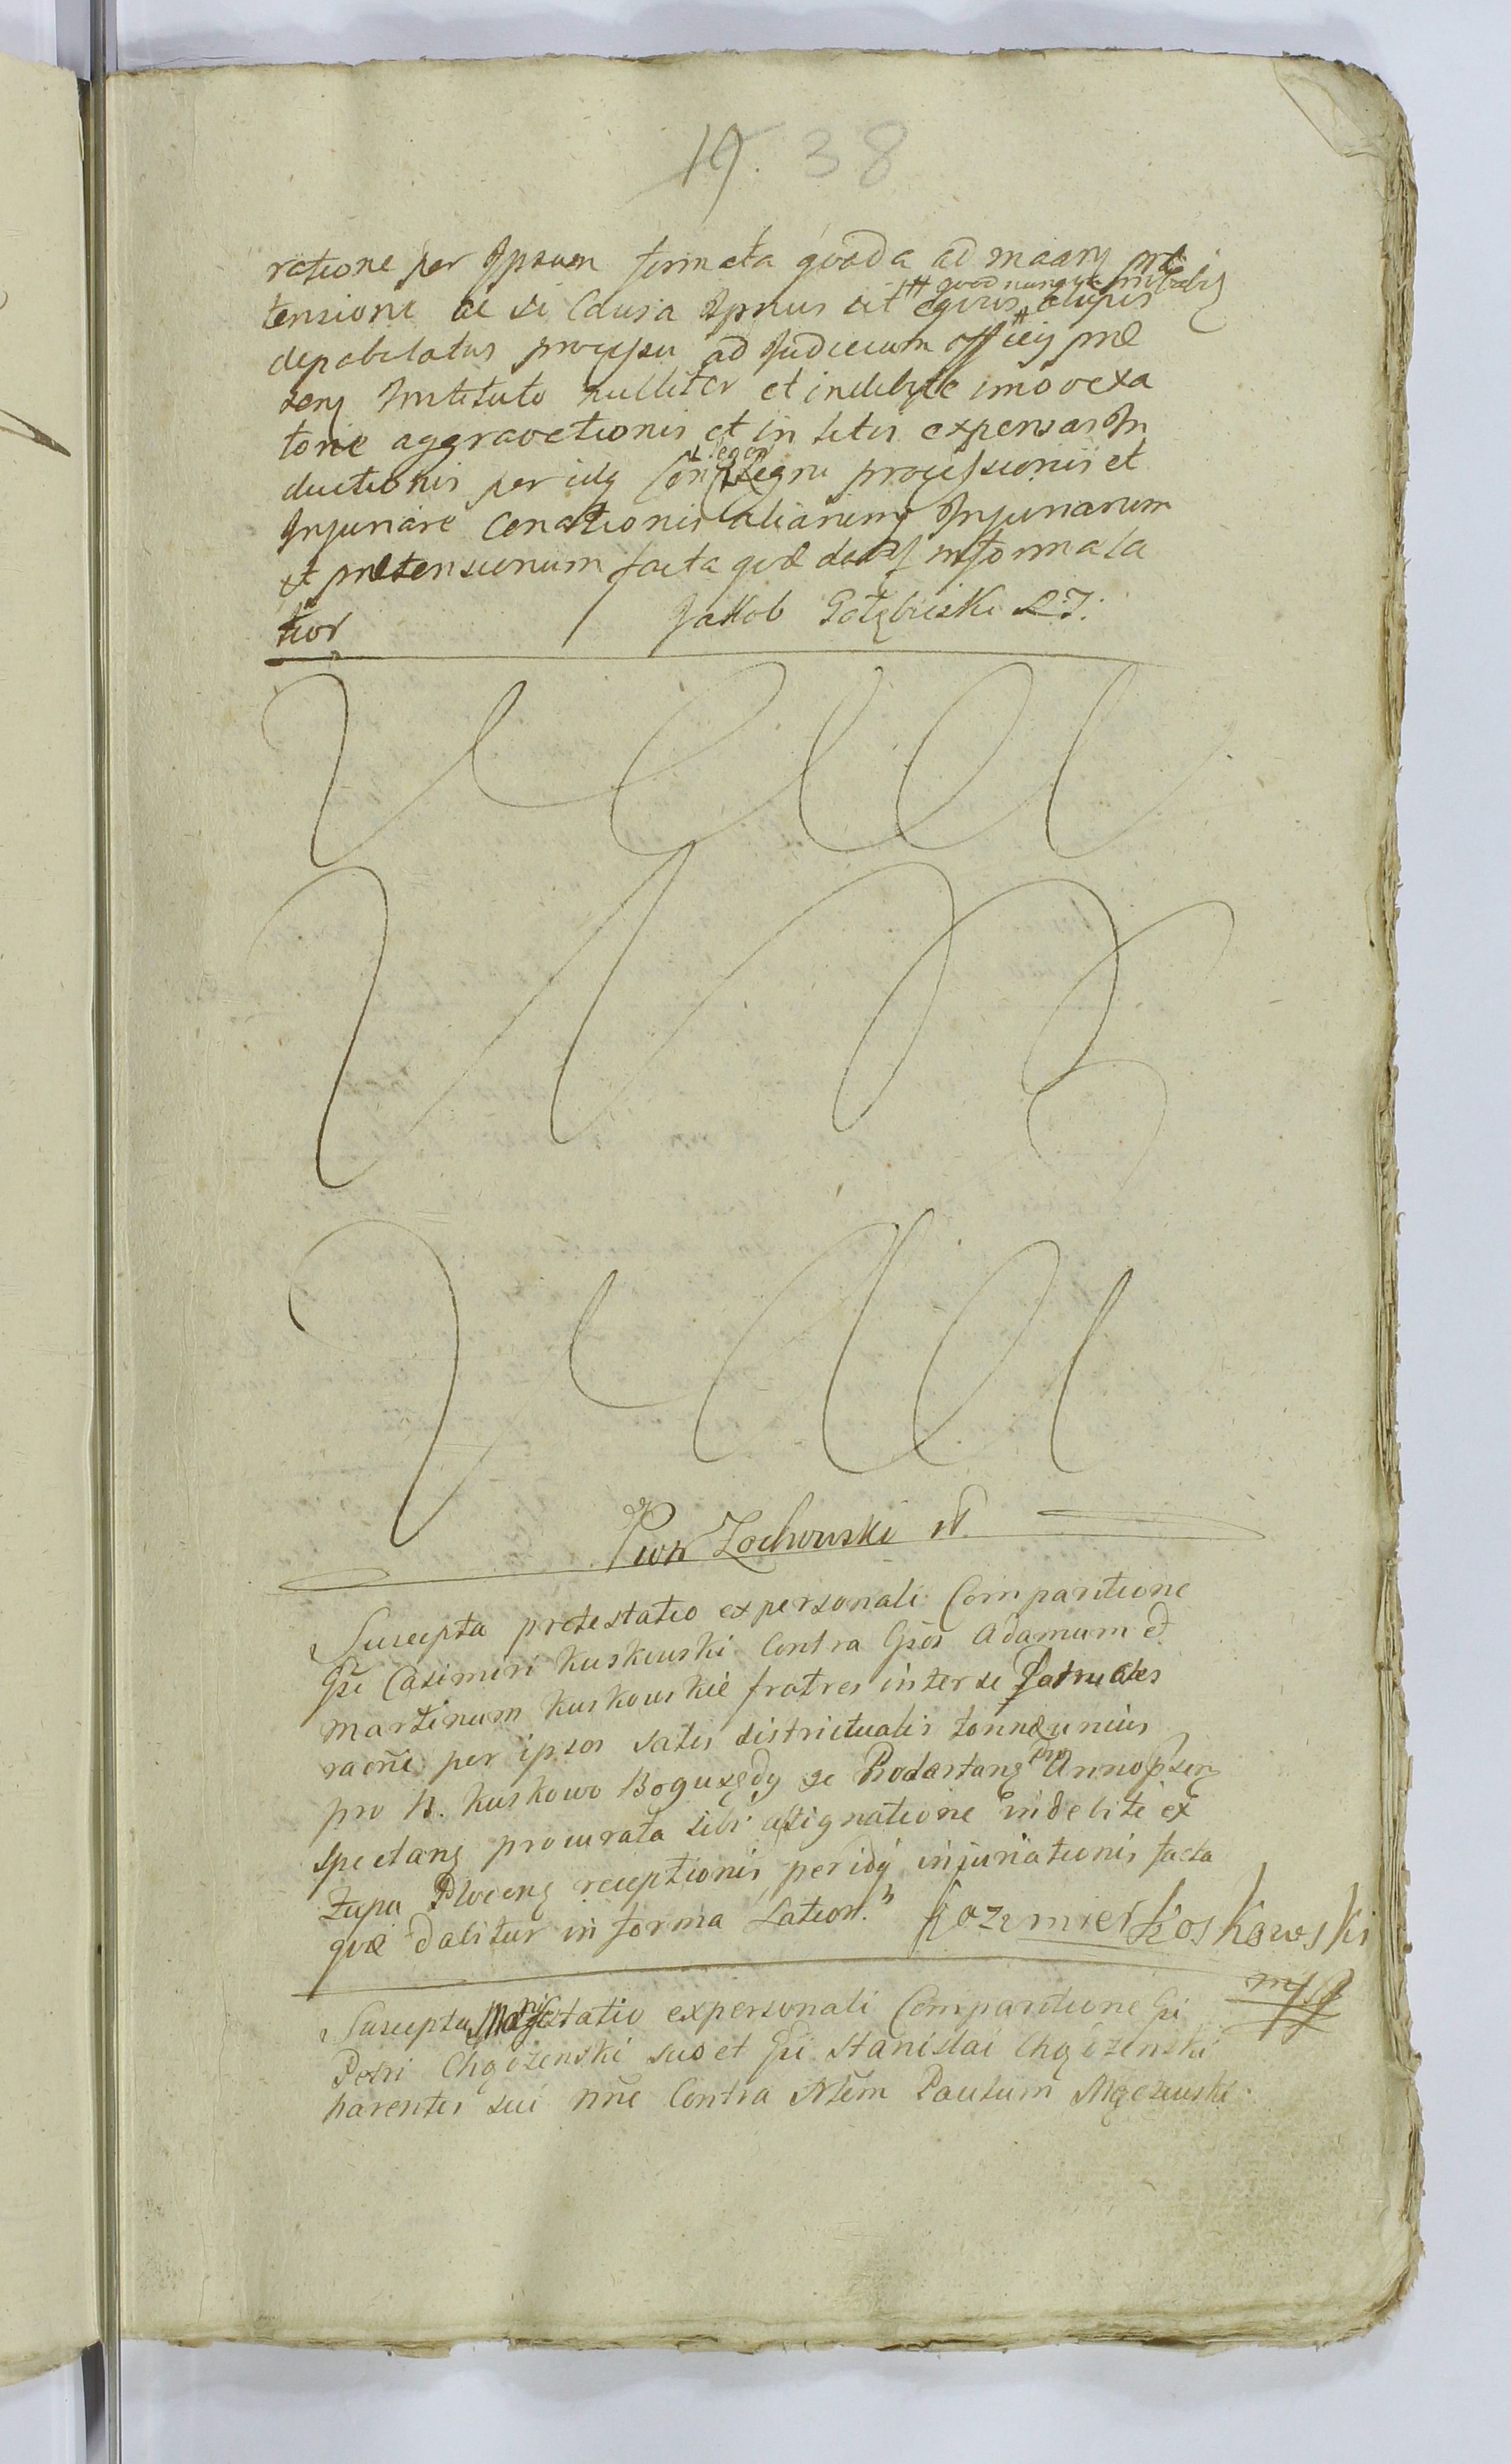 19. 38
ratione per Ipsum formata quada ad maarz præ
# quod nunquam
tensione ac si Causa Ipsius sit equis
depabulatus processu ad Judicium officij præ
senz Instituto nulliter et indebite imo vexa
torie aggravationis et in litis expensas In
ductionis per idq Con Legni processionis et
Injuriare Conationis aliarumq Injuriarum
et prætensionum facta quæ dabz in forma la
tior Jakob Gołębiski R.J.
Piotr Zochowski
Suscepta protestatio ex personali Comparitione
Gsi Casimiri Kuskowski Contra Gsos Adamum et
Martinum Kuskowskie fratres inter se Patrueles
raõne per ipsos satis districtualis tonnæ unius
pro B. Kuskowo Bogusędy se Prodæstanz pro Anno psenz
spectanz procurata sibi assignatione indebite ex
Zupa Plocenz receptionis peridq injuriationis facta
quæ dabitur in forma Latiori. Kozimier Koskowski
mpp
Suscepta Manifestatio ex personali Comparitione Gsi
Petri Chądzenski suo et Gsi Stanislai Chądzenski
parentis sui nñe Contra Nlem Paulum Mężenski